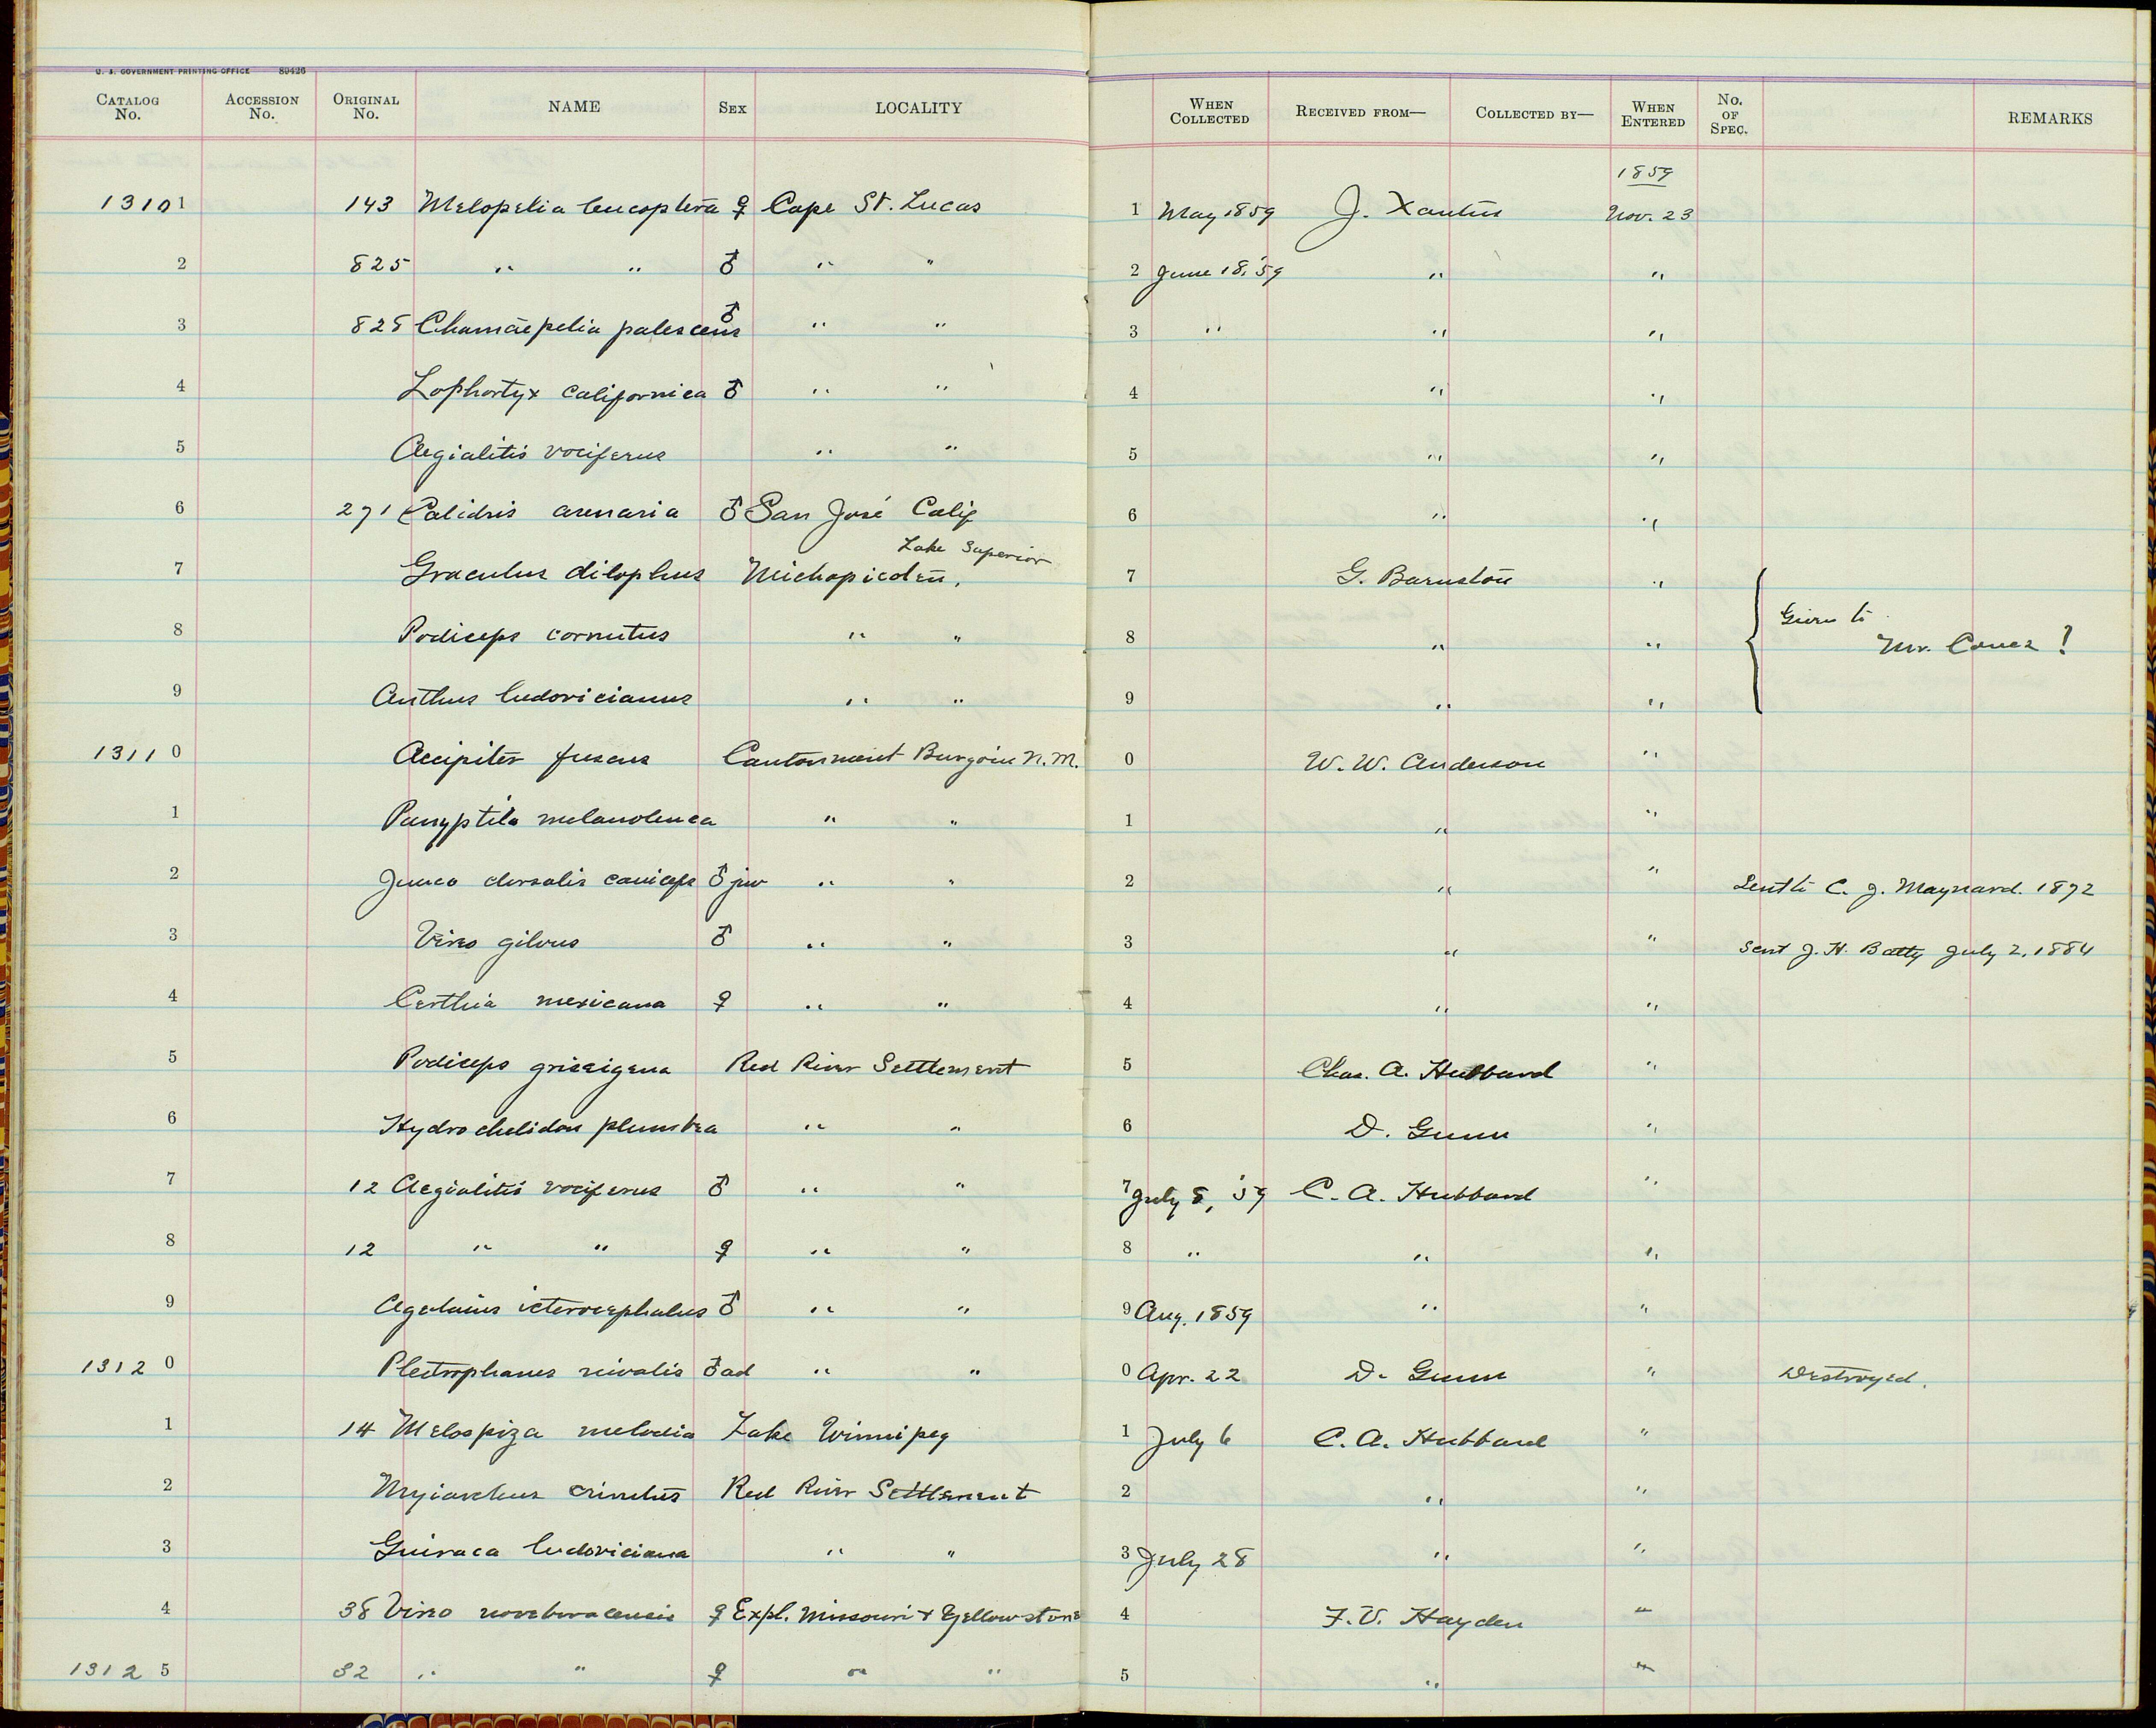 U. S. GOVERNMENT PRINTING OFFICE 89426
CATALOG No. ACCESSION No. ORIGINAL No. NAME SEX LOCALITY WHEN COLLECTED RECEIVED FROM— COLLECTED BY— WHEN ENTERED No. OF SPEC. REMARKS
1859
13101 143 Melopelia leucoptera ♀ Cape St. Lucas 1 May 1859 J. Xantus Nov. 23
2 825 " " ♂ " " 2 June 18, '59 " "
3 828 Chamaepelia palescens ♂ " " 3 " " "
4 Lophortyx californica ♂ " " 4 " "
5 Aegialitis vociferus " " 5 " "
6 271 Calidris arenaria ♂ San José Calif 6 " "
7 Graculus dilophus Michapicoten, Lake Superior 7 G. Barnston "
8 Podiceps cornutus " " 8 " " Given to Mr. Coues !
9 Anthus ludovicianus " " 9 " "
13110 Accipiter fuscus Cantonment Burgoin N.M. 0 W. W. Anderson "
1 Panyptila melanoleuca " " 1 " "
2 Junco dorsalis caniceps ♂ juv " " 2 " " Sent to C. J. Maynard. 1872
3 Vireo gilvus ♂ " " 3 " " Sent J. H. Batty July 2, 1884
4 Certhia mexicana ♀ " " 4 " "
5 Podiceps griseigena Red River Settlement 5 Chas. A. Hubbard "
6 Hydrochelidon plumbea " " 6 D. Gunn "
7 12 Aegialitis vociferus ♂ " " 7 July 8, '59 C. A. Hubbard "
8 12 " " ♀ " " 8 " " "
9 Agelaius icterocephalus ♂ " " 9 Aug. 1859 " "
13120 Plectrophanes nivalis ♂ ad " " 0 Apr. 22 D. Gunn " Destroyed.
1 14 Melospiza melodia Lake Winnipeg 1 July 6 C. A. Hubbard "
2 Myiarchus crinitus Red River Settlement 2 " "
3 Guiraca ludoviciana " " 3 July 28 " "
4 38 Vireo noveboracensis ♀ Expl. Missouri & Yellowstone 4 F. V. Hayden "
13125 32 " " ♀ " " 5 " "